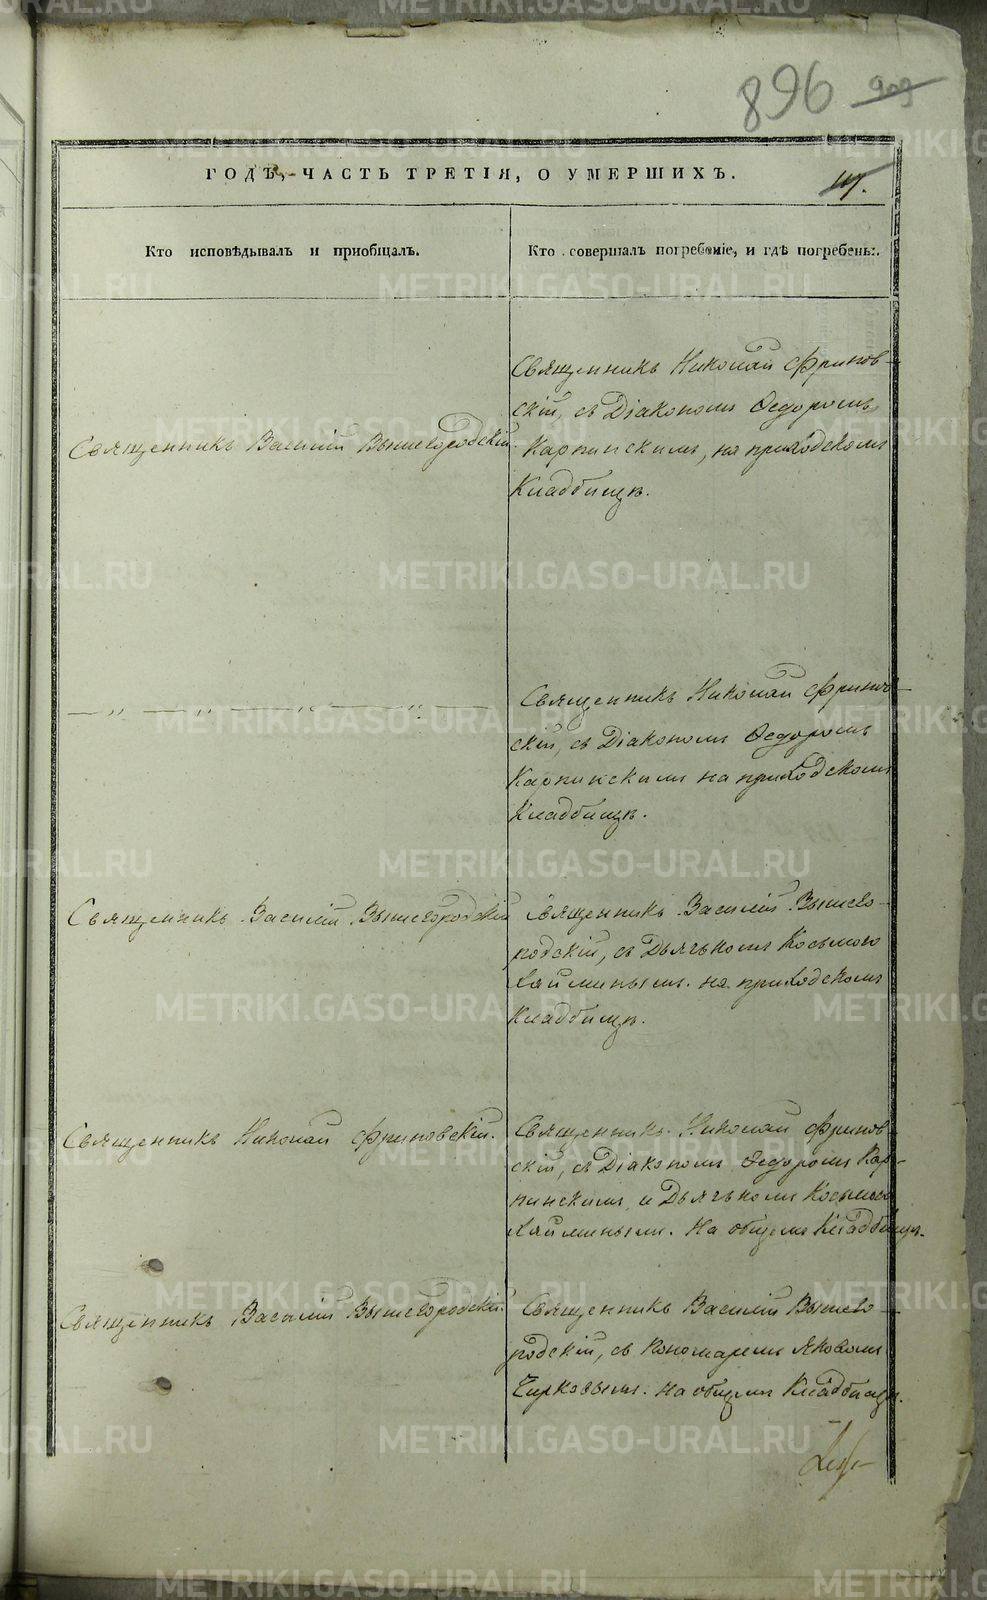 896 909
ГОДЪ, ЧАСТЬ ТРЕТІЯ, О УМЕРШИХЪ.
Кто исповѣдывалъ и пріобщалъ.
Кто совершалъ погребеніе, и гдѣ погребены.
Священникъ Василій Вышегородскій
Священникъ Николай Фринов-
скій, съ Діакономъ Ѳедоромъ
Карпинскимъ, на приходскомъ
Кладбищѣ.
— „ — „ — „ — „ —
Священникъ Николай Фринов-
скій, съ Діакономъ Ѳедоромъ
Карпинскимъ на приходскомъ
Кладбищѣ.
Священникъ Василій Вышегородскій
Священникъ Василій Вышего-
родскій, съ Дьячкомъ Косьмою
Хайминымъ. на приходскомъ
Кладбищѣ.
Священникъ Николай Фриновскій.
Священникъ Николай Фринов-
скій, съ Діакономъ Ѳедоромъ Кар-
пинскимъ и Дьячкомъ Косьмою
Хайминымъ. На общемъ Кладбищѣ.
Священникъ Василій Вышегородскій.
Священникъ Василій Вышего-
родскій, съ Пономаремъ Яковомъ
Чирковымъ. На общемъ Кладбищѣ.
METRIKI.GASO-URAL.RU